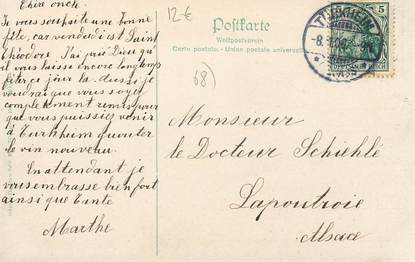 Cher oncle.
Je vous souhaite une bonne
fête, car vendredi est Saint
Théodore. J'ai prié Dieu qu'il
vous laisse encore longtemps
fêter ce jour là. Aussi je
voudrai que vous soyez
complètement remis pour
que vous puissiez venir
à Turkheim goûter
le vin nouveau.
En attendant je
vous embrasse bien fort
ainsi que Tante
Marthe
12 €
68)
Postkarte
Weltpostverein
Carte postale. - Union postale universelle
TÜRKHEIM
5
Monsieur
le Docteur Schiehlé
Lapoutroie
Alsace